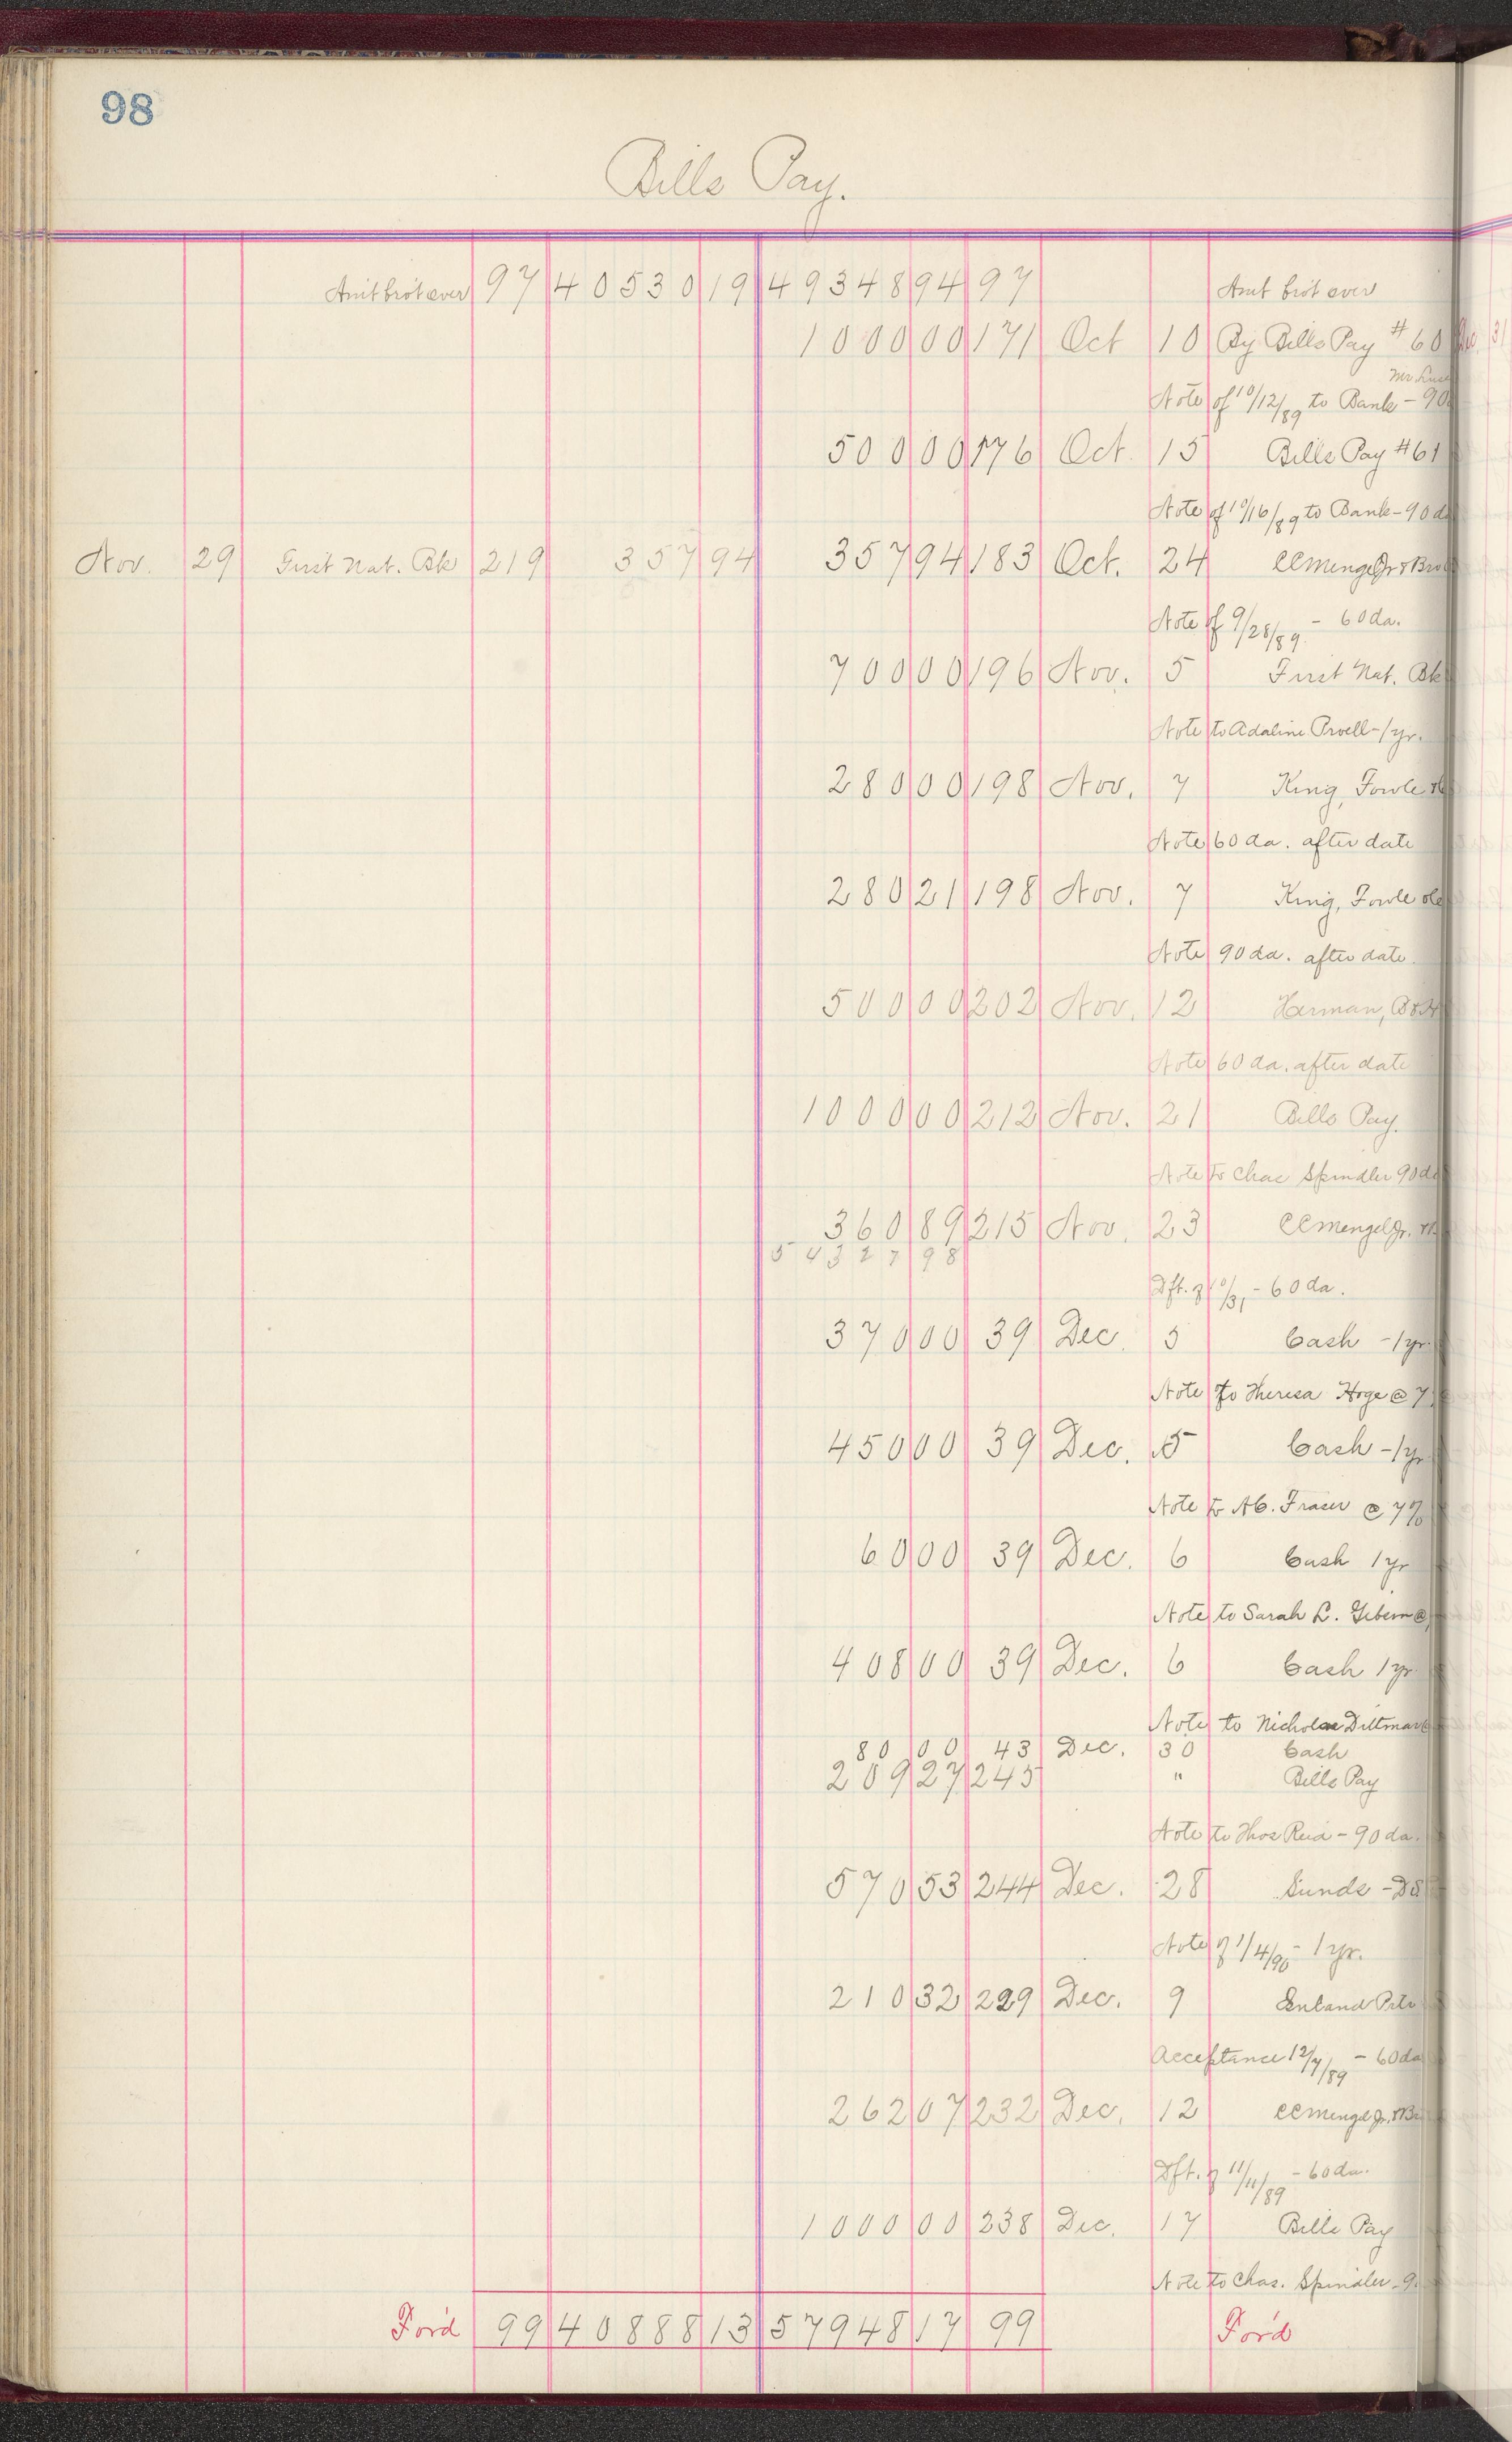 98
Bills Pay.
Amt brot over 97 40530 19 49348 94 97 Amt brot over
1000 00 171 Oct 10 By Bills Pay #60
Mr Luce
Note of 10/12/89 to Bank - 90
500 00 176 Oct. 15 Bills Pay #61
Note of 10/16/89 to Bank - 90 d
Nov. 29 First Nat. Bk 219 357 94 357 94 183 Oct. 24 CC Mengel Jr & Bro
Note of 9/28/89 - 60 da.
700 00 196 Nov. 5 First Nat. Bk
Note to Adaline Proell - 1 yr.
280 00 198 Nov. 7 King, Fowle &
Note 60 da. after date
280 21 198 Nov. 7 King, Fowle &
Note 90 da. after date
500 00 202 Nov. 12 Herman, B &
Note 60 da. after date
1000 00 212 Nov. 21 Bills Pay.
Note to Chas Spindler 90 d
360 89 215 Nov. 23 CC Mengel Jr. &
54327 98
Dft. of 10/31 - 60 da.
370 00 39 Dec. 5 Cash - 1 yr.
Note to Theresa Hoge @ 7
450 00 39 Dec. 5 Cash - 1 yr
Note to A C. Fraser @ 7%
60 00 39 Dec. 6 Cash 1 yr
Note to Sarah L. @
408 00 39 Dec. 6 Cash 1 yr
Note to Nicholas Dittmar
80 00 43 Dec. 30 Cash
209 27 245 " Bills Pay
Note to Thos Reid - 90 da.
570 53 244 Dec. 28 Sunds -
Note of 1/4/90 - 1 yr.
210 32 229 Dec. 9
Acceptance 12/7/89 - 60 da
262 07 232 Dec. 12 CC Mengel Jr. & Br
Dft. of 11/11/89 - 60 da.
1000 00 238 Dec. 17 Bills Pay
Note to Chas. Spindler - 9
For'd 99 40888 13 57948 17 99 For'd